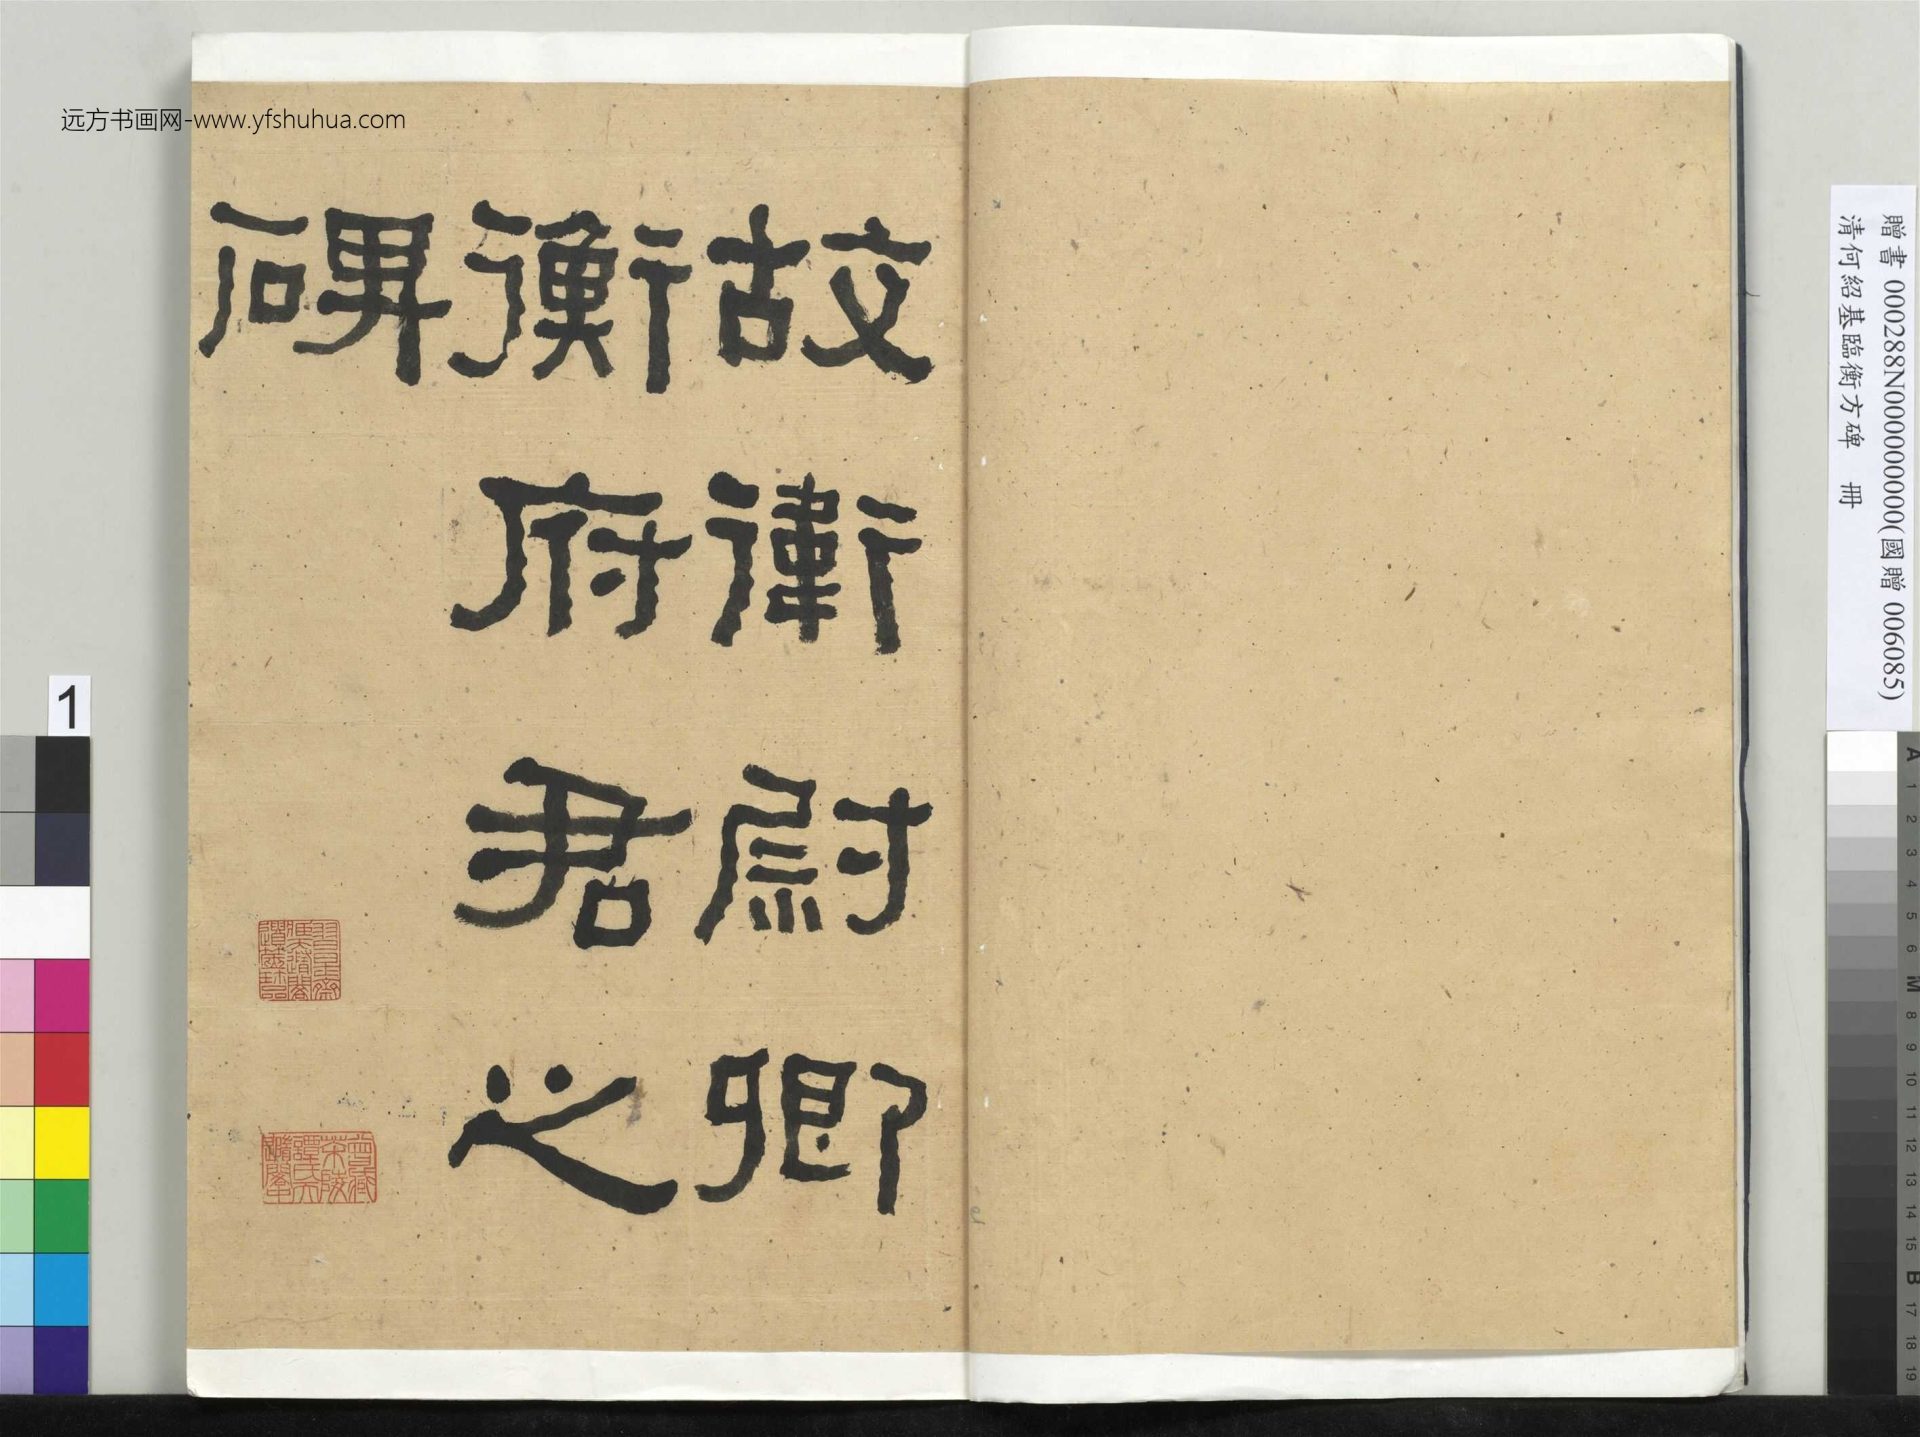 远方书画网-www.yfshuhua.com
贈書 000288N000000000(國贈 006085)
清何紹基臨衡方碑 冊
故衛尉卿
衡府君之
碑
1
A
1
2
3
4
5
6
M
8
9
10
11
12
13
14
15
B
17
18
19